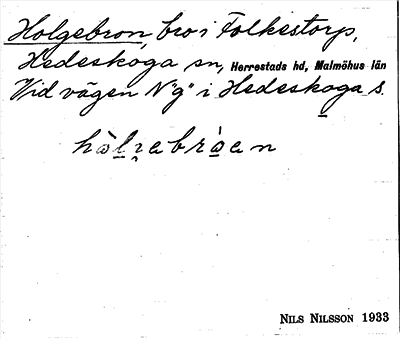 Holgebron, bro i Folkestorp,
Hedeskoga sn, Herrestads hd, Malmöhus län
Vid vägen N"g" i Hedeskoga s.
NILS NILSSON 1933